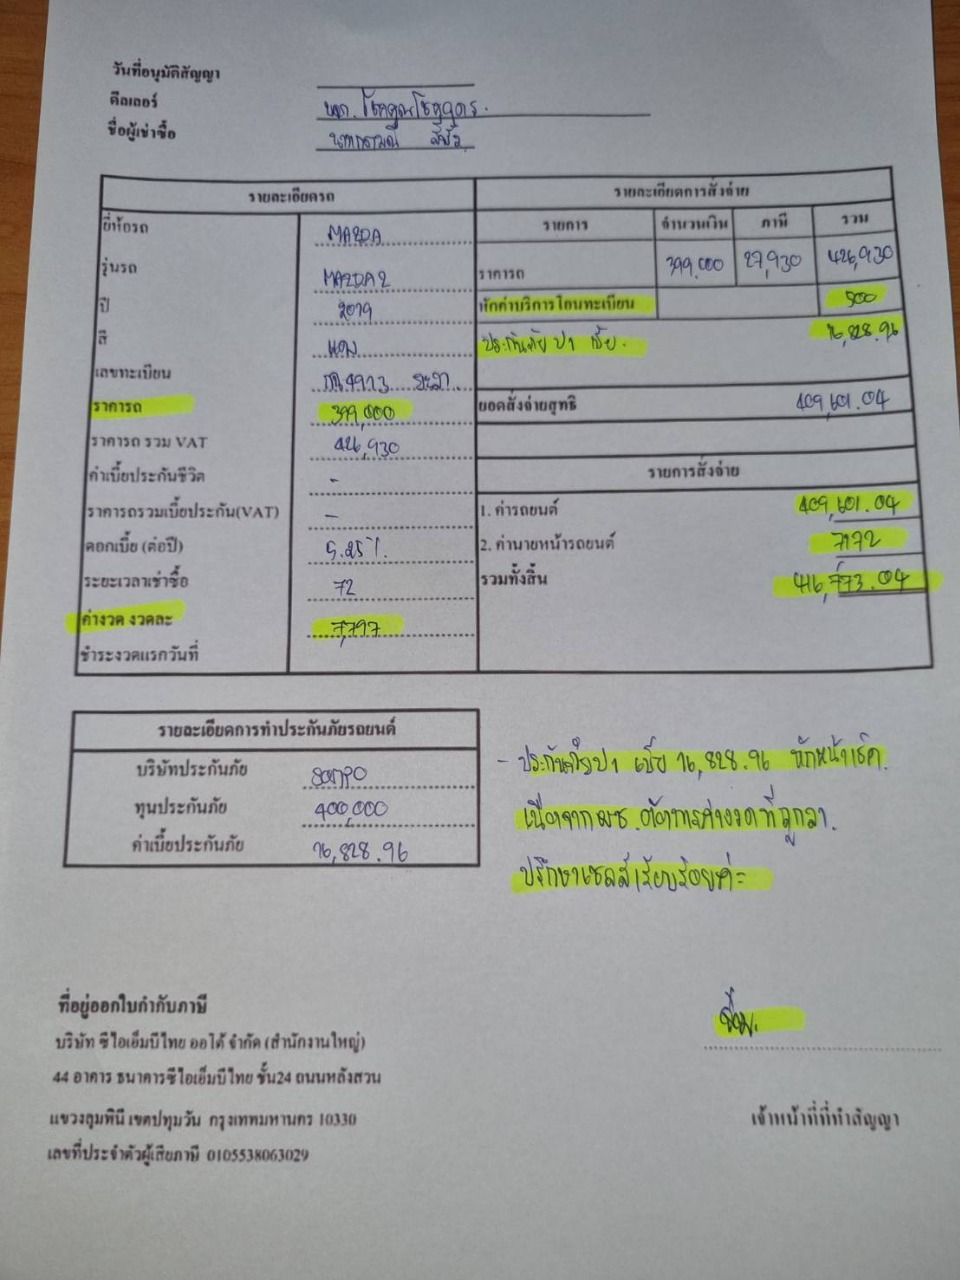 วันที่อนุมัติสัญญา
ดีลเลอร์ หจก. โชคคูณโชค
ชื่อผู้เช่าซื้อ
รายละเอียดรถ
ยี่ห้อรถ MAZDA
รุ่นรถ MAZDA 2
ปี 2019
สี แดง
เลขทะเบียน 4913 ยะลา
ราคารถ 399,000
ราคารถ รวม VAT 426,930
ค่าเบี้ยประกันชีวิต -
ราคารถรวมเบี้ยประกัน(VAT) -
ดอกเบี้ย (ต่อปี) 5.25%
ระยะเวลาเช่าซื้อ 72
ค่างวด งวดละ 7,797
ชำระงวดแรกวันที่
รายละเอียดการสั่งจ่าย
รายการ จำนวนเงิน ภาษี รวม
ราคารถ 399,000 27,930 426,930
หักค่าบริการโอนทะเบียน 500
ประกันภัย ป1 เบี้ย. 16,828.96
ยอดสั่งจ่ายสุทธิ 409,601.04
รายการสั่งจ่าย
1. ค่ารถยนต์ 409,601.04
2. ค่านายหน้ารถยนต์ 7172
รวมทั้งสิ้น 416,773.04
รายละเอียดการทำประกันภัยรถยนต์
บริษัทประกันภัย SOMPO
ทุนประกันภัย 400,000
ค่าเบี้ยประกันภัย 16,828.96
- ประกันภัย ป1 เบี้ย 16,828.96 หักหน้าเช็ค.
เนื่องจาก ผช. ต้องการค่างวดที่ถูกลง.
ปรึกษาเซลส์เรียบร้อยค่ะ
ที่อยู่ออกใบกำกับภาษี
บริษัท ซีไอเอ็มบีไทย ออโต้ จำกัด (สำนักงานใหญ่)
44 อาคาร ธนาคารซีไอเอ็มบีไทย ชั้น24 ถนนหลังสวน
แขวงลุมพินี เขตปทุมวัน กรุงเทพมหานคร 10330
เลขที่ประจำตัวผู้เสียภาษี 0105538063029
เจ้าหน้าที่ที่ทำสัญญา